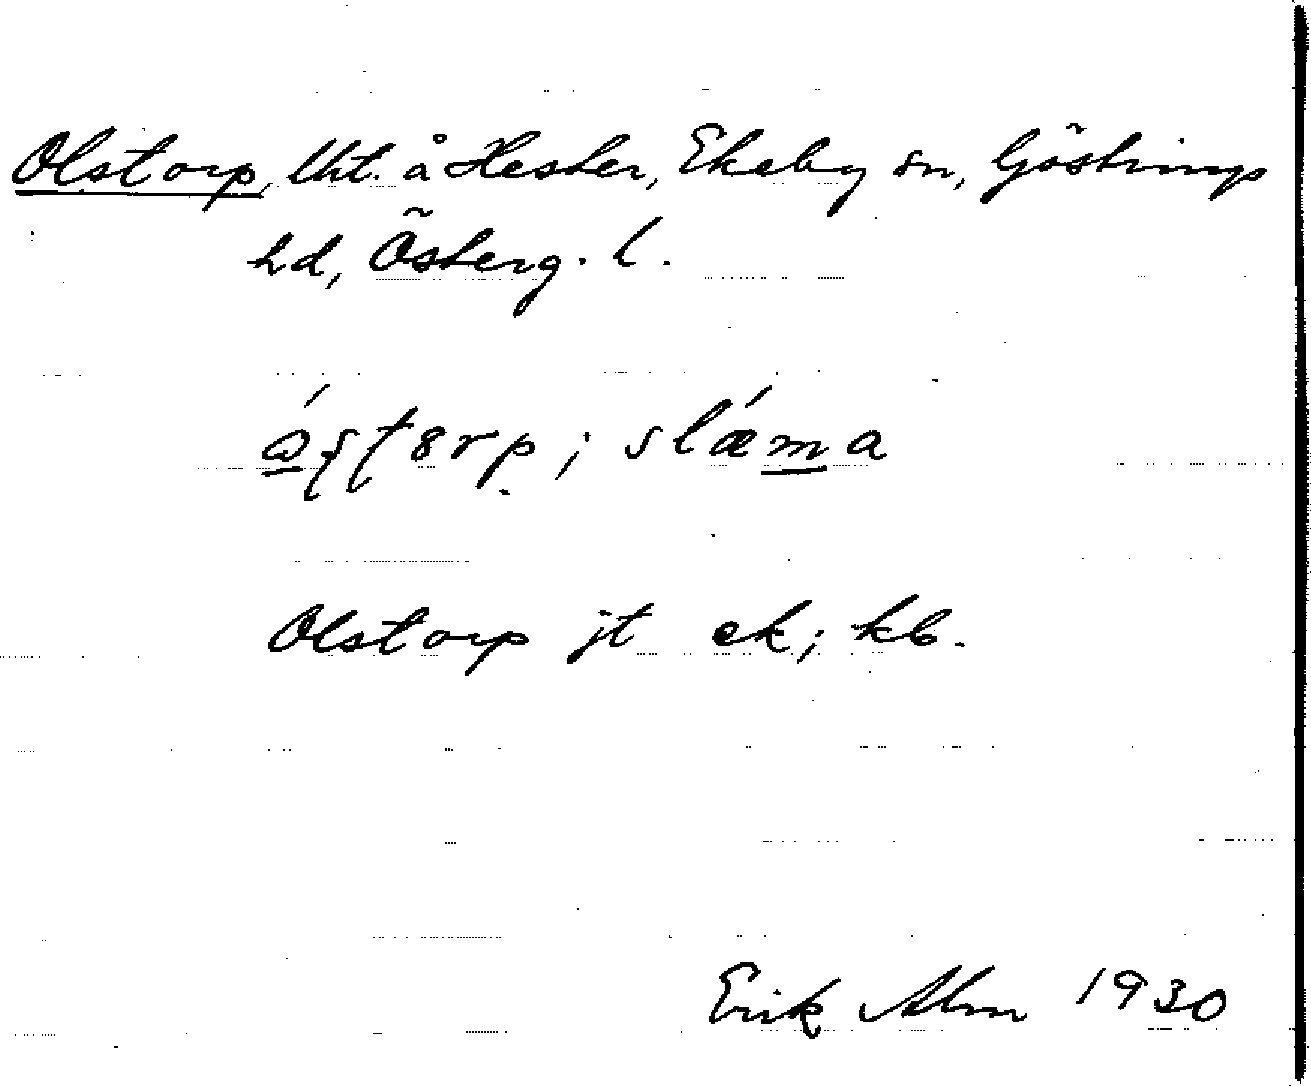 Olstorp, lht. å Hester, Ekeby sn, Göstrings
hd, Österg. l.
slǽma
Olstorp jt ek; kb.
Erik Alm 1930